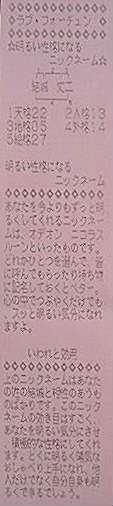 ◇ラブ・フォーチュン◇
☆明るい性格になる
ニックネーム☆
結城 丈二
1天格22 2人格13
3地格05 4外格14
5総格27
明るい性格になる
ニックネーム
あなたを今よりもずっと明
るくしてくれるニックネー
ムは、オデオン ニコラス
ルーンといったものです。
どれかひとつを選んで、皆
に呼んでもらったり持ち物
に記名しておくとベター。
心の中でつぶやくだけでも
、スッと明るい気分になれ
ますよ。
いわれと効用
上のニックネームはあなた
の姓の結城と相性のあうも
のばかりです。このニック
ネームの効き目はすごく、
あなたを明るい気分にさせ
、積極的な性格にしてくれ
ます。とくに明るく陽気な
おしゃべり上手になれ、他
人だけでなく自分自身も明
るくできるでしょう。